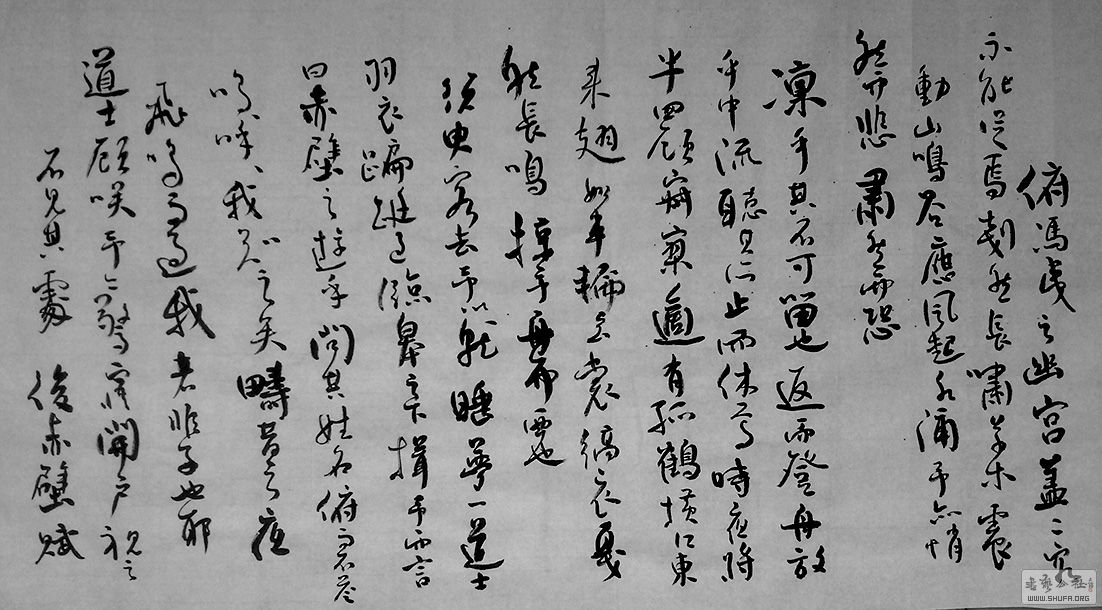 俯馮夷之幽宮蓋二客
不能從焉劃然長嘯草木震
動山鳴谷應風起水涌予亦悄
然而悲肅然而恐
凜乎其不可留也返而登舟放
乎中流聽其所止而休焉時夜將
半四顧寂寥適有孤鶴橫江東
來翅如車輪玄裳縞衣戛
然長鳴掠予舟而西也
須臾客去予亦就睡夢一道士
羽衣蹁躚過臨皋之下揖予而言
曰赤壁之遊乎問其姓名俯而不答
嗚呼我知之矣疇昔之夜
飛鳴而過我者非子也耶
道士顧笑予亦驚寤開戶視之
不見其處 後赤壁賦
WWW.SHUFA.ORG